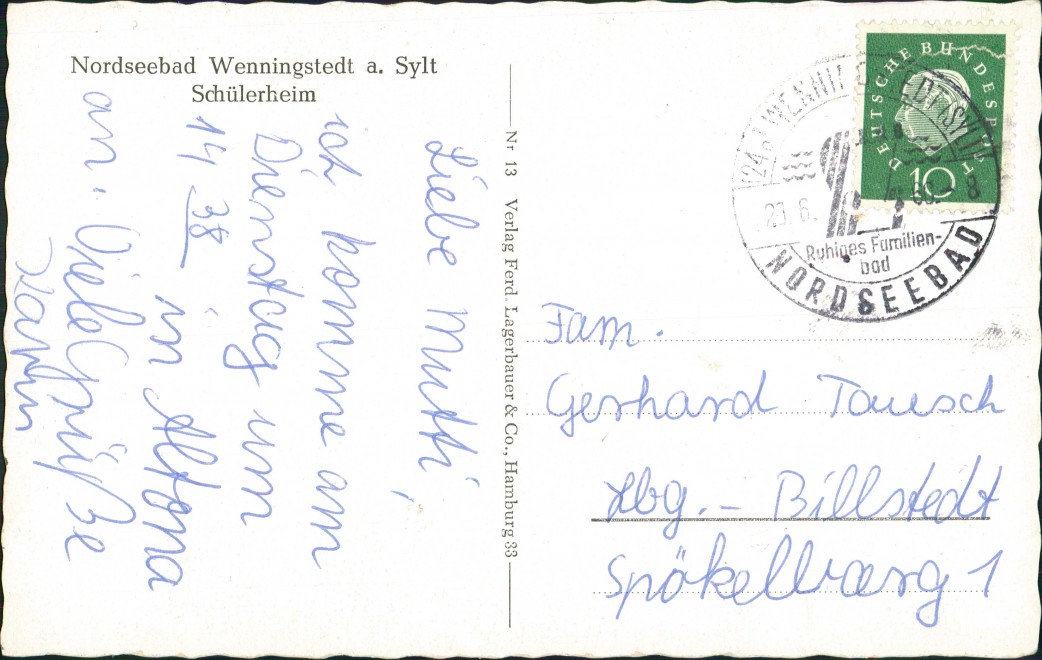 Nordseebad Wenningstedt a. Sylt
Schülerheim
Liebe Mutti,
ich komme am
Dienstag um
14 38 in Altona
an. Viele Grüße
Nr 13 Verlag Ferd. Lagerbauer & Co., Hamburg 33
DEUTSCHE BUNDESPOST
10
NORDSEEBAD
Ruhiges Familien-
bad
Fam.
Gerhard Tausch
Hbg.- Billstedt
Spökelbarg 1